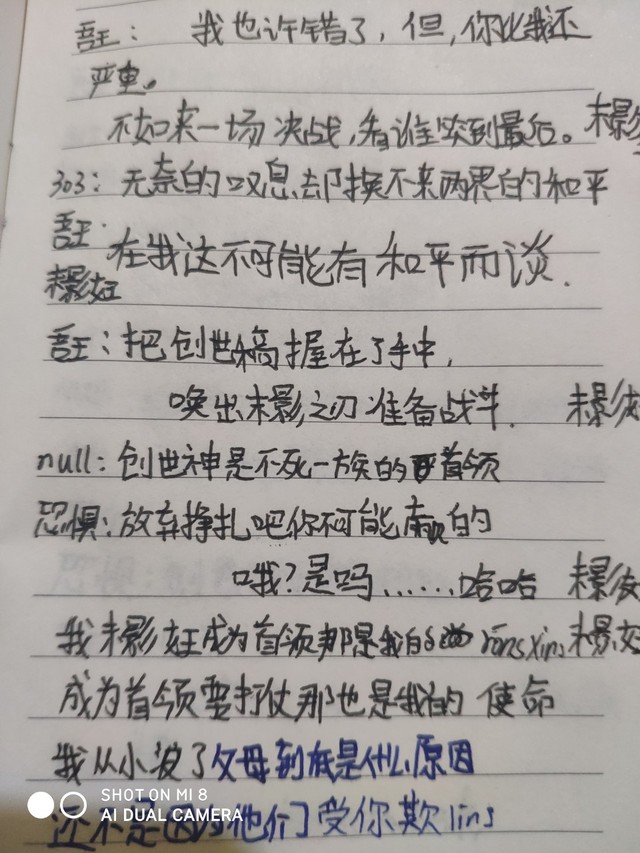 吾王: 我也许错了，但，你比我还
严重。
不如来一场决战，看谁笑到最后。
303: 无奈的叹息却换不来两界的和平
吾王:
在我这不可能有和平而谈.
末影
吾王: 把创世稿握在了手中,
唤出末影之刃准备战斗. 末影
null: 创世神是不死一族的首领
恐惧: 放弃挣扎吧你不可能赢的
哦? 是吗......哈哈 末影
我末影 成为首领那是我的
成为首领要打仗那也是我的 使命
我从小没了父母到底是什么原因
还不是因为他们受你欺ling
SHOT ON MI 8
AI DUAL CAMERA